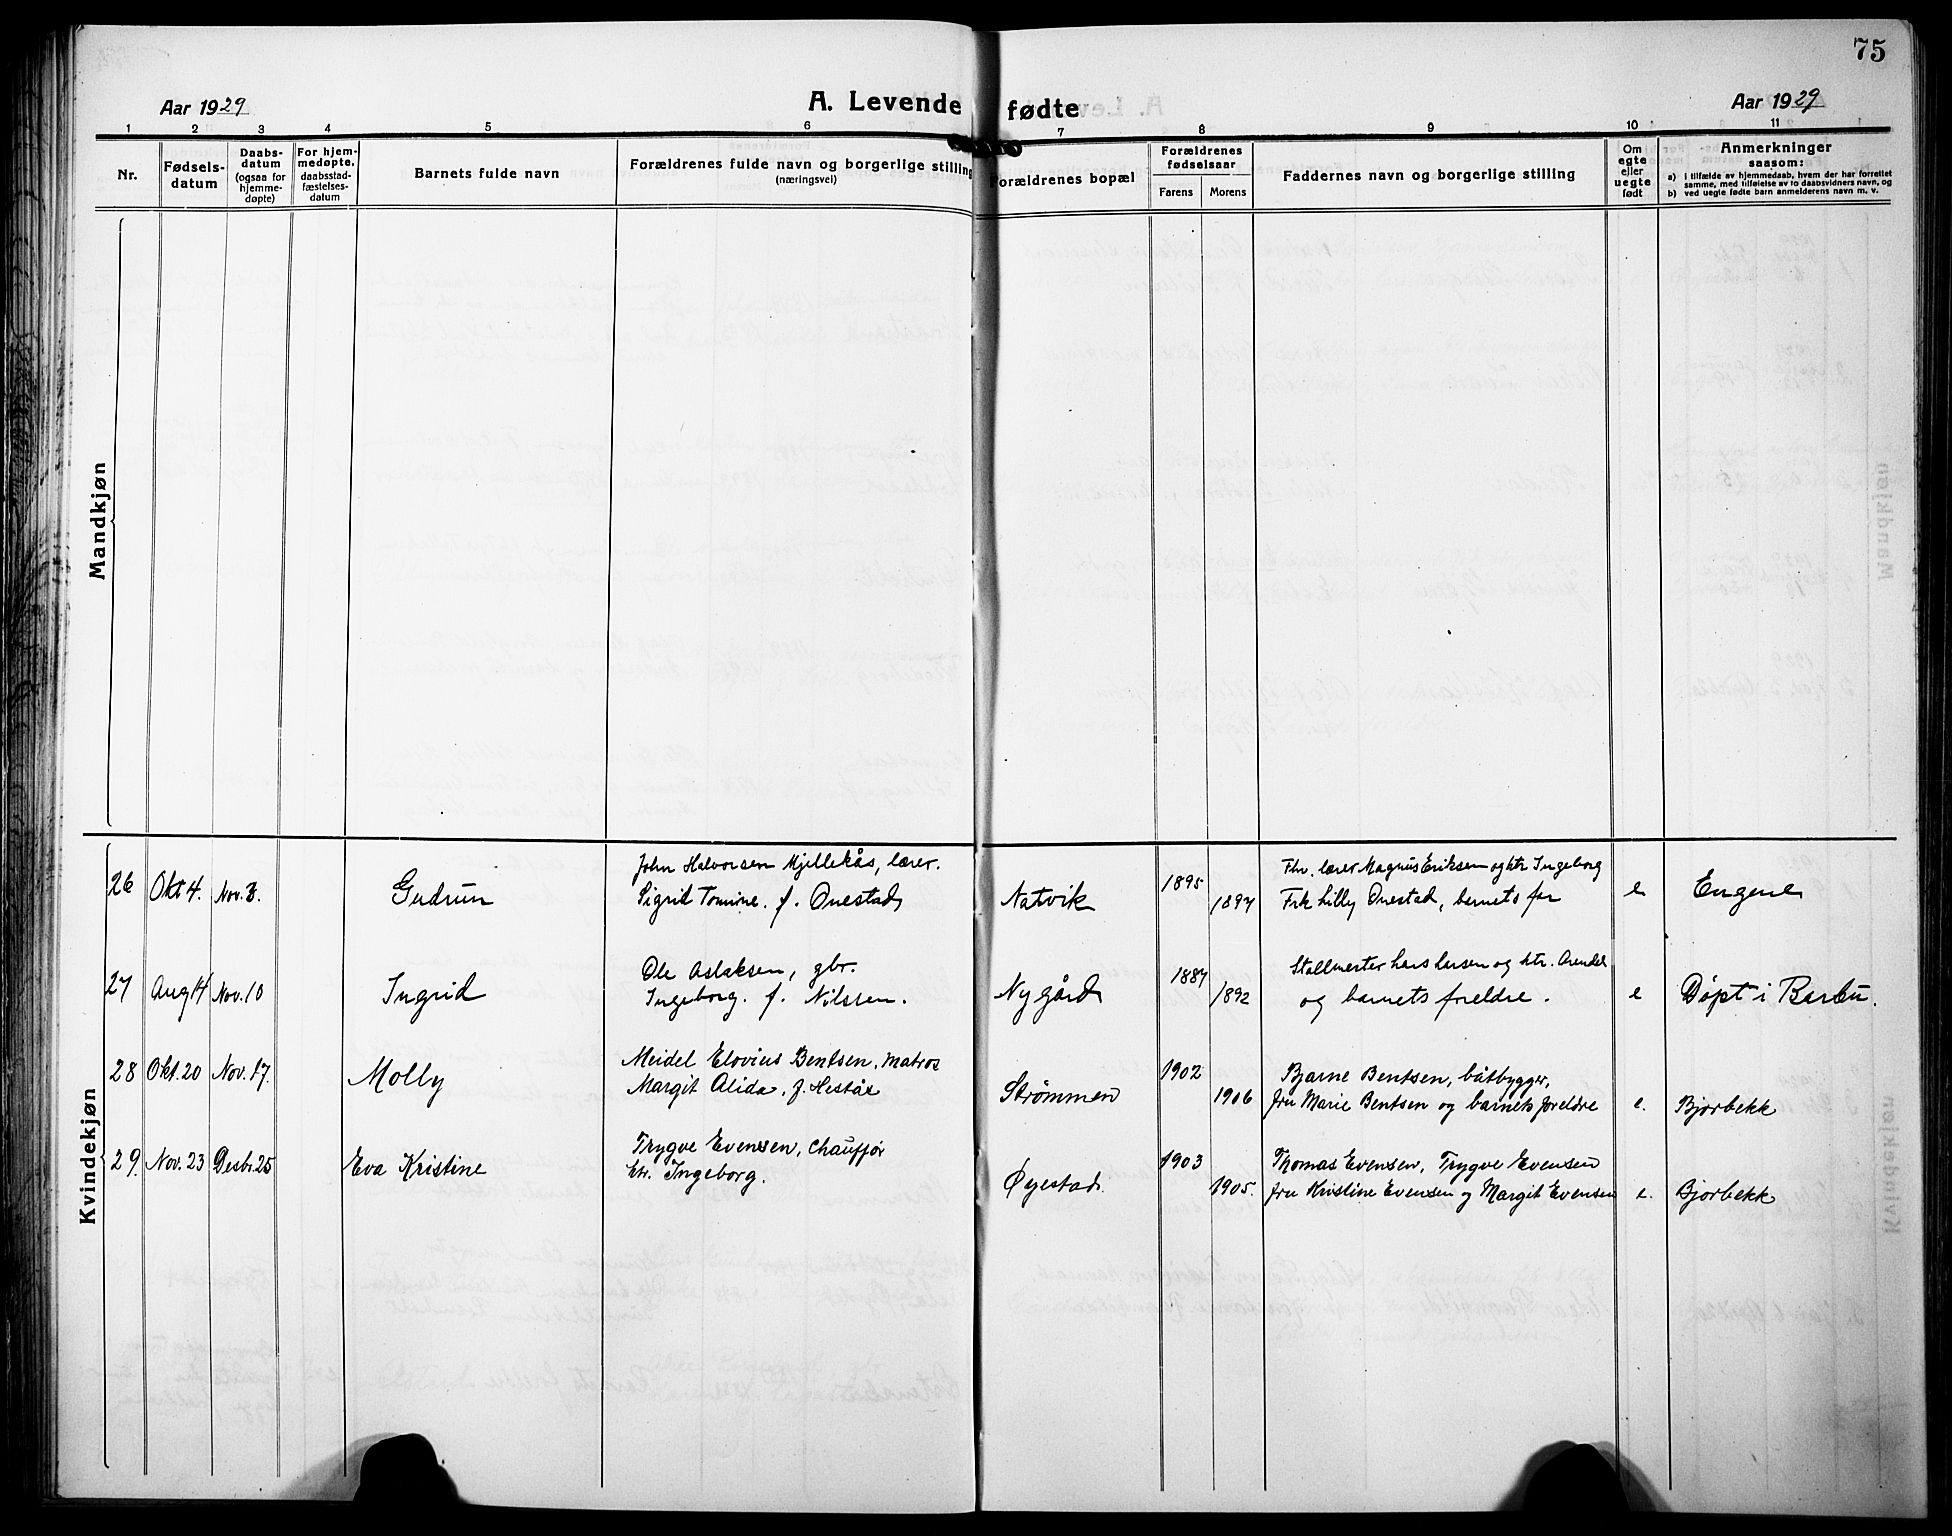 75
Aar 1929
A. Levende fødte
Aar 1929
1 2 3 4 5 6 7 8 9 10 11
Nr.
Fødsels-
datum
Daabs-
datum
(ogsaa for
hjemme-
døpte)
For hjem-
medøpte,
daabsstad-
fæstelses-
datum
Barnets fulde navn
Forældrenes fulde navn og borgerlige stilling
(næringsvei)
Forældrenes bopæl
Forældrenes
fødselsaar
Farens Morens
Faddernes navn og borgerlige stilling
Om
egte
eller
uegte
født
Anmerkninger
saasom:
a) i tilfælde av hjemmedaab, hvem der har forrettet
samme, med tilføielse av to daabsvidners navn, og
b) ved uegte fødte barn anmelderens navn m. v.
Mandkjøn
Kvindekjøn
John Halvorsen Mjellekås, lærer. Fhv. lærer Magnus Eriksen og htr. Ingeborg
26 Okt 4. Nov. 3. Gudrun Sigrid Tomine. f. Onestad Natvik 1895 1897 Frk Lilly Onestad, barnets far e Engene
Ole Aslaksen, gbr. Stallmester Lars Larsen og htr. Arendal
27 Aug 14 Nov. 10 Ingrid Ingeborg. f. Nilssen. Nygård 1887 1892 og barnets foreldre. e Døpt i Barbu.
28 Okt. 20 Nov. 17. Molly Meidel Elovius Bentsen, matros 1902 Bjarne Bentsen, båtbygger,
Margit Alida, f. Hestås Strømmen 1906 fru Marie Bentsen og barnets foreldre e. Bjorbekk
29. Nov. 23 Desbr. 25 Eva Kristine Trygve Evensen, chauffør 1903 Thomas Evensen, Trygve Evensen
htr. Ingeborg. Øyestad. 1905. fru Kristine Evensen og Margit Evensen e. Bjorbekk